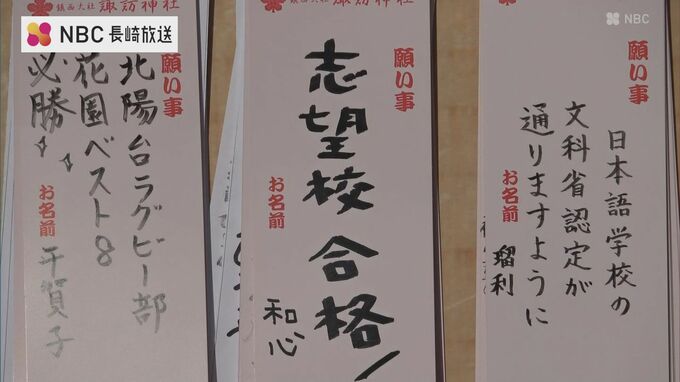 NBC 長崎放送
NBC
鎮西大社 諏訪神社
願い事
北陽台ラグビー部
花園ベスト8
必勝
お名前
平賀子
願い事
志望校合格!
お名前
和心
願い事
日本語学校の
文科省認定が
通りますように
お名前
瑠利